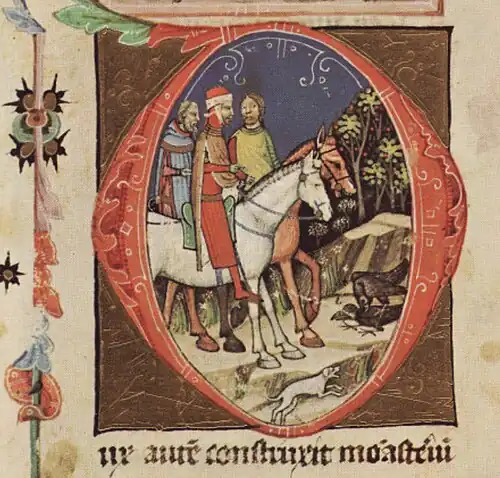 Dux autē construxit mōast'iū